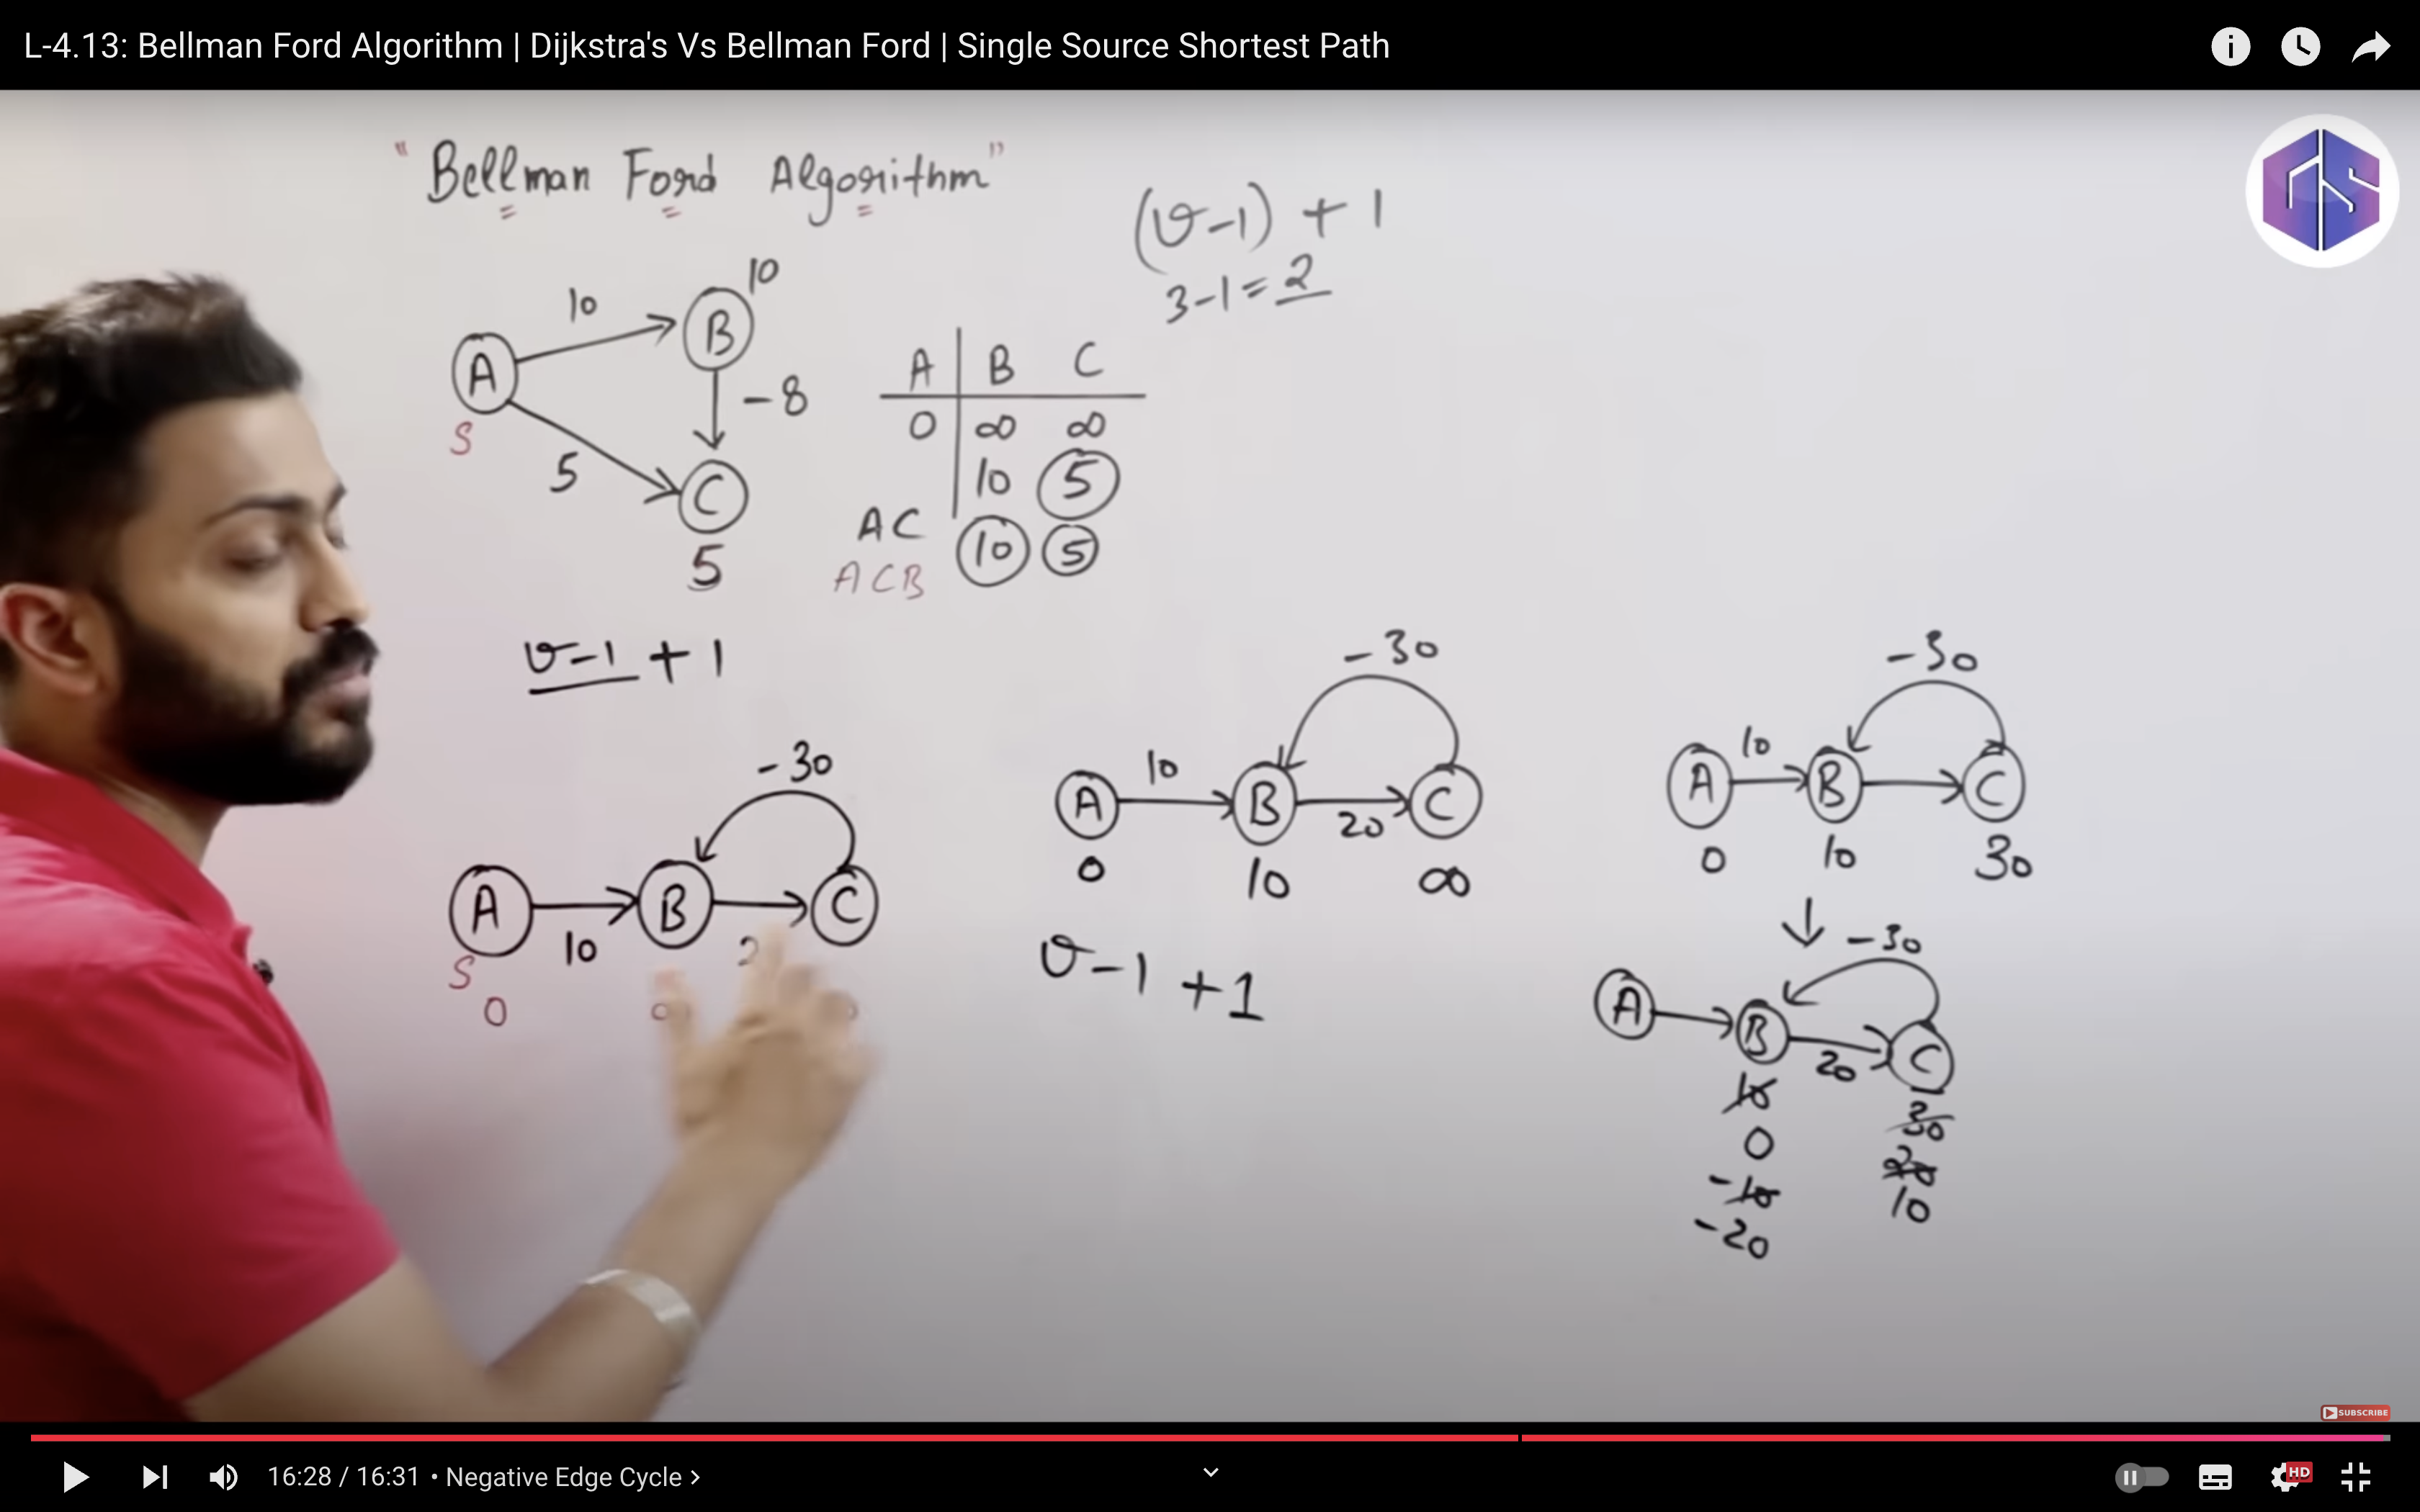 L-4.13: Bellman Ford Algorithm | Dijkstra's Vs Bellman Ford | Single Source Shortest Path
"Bellman Ford Algorithm"
(v-1) + 1
3-1=2
10
10
A
B
-8
S
5
C
5
A B C
0 ∞ ∞
10 5
AC 10 5
ACB
v-1 + 1
-30
A B C
10
S
0
-30
10
A B C
20
0 10 ∞
v-1 +1
-30
10
A B C
0 10 30
↓
-30
A B C
20
10 30
0 20
-10 10
-20
SUBSCRIBE
16:28 / 16:31 • Negative Edge Cycle >
HD